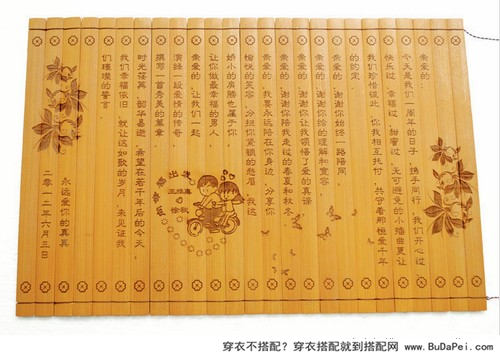 亲爱的：
今天是我们一周年的日子，携手同行，我们开心过、
快乐过、幸福过、甜蜜过，无可避免的小插曲更让
我们珍惜彼此，你我相互托付，共守着那恒爱千年
的约定
亲爱的，谢谢你始终一路陪同
亲爱的，谢谢你给的理解和宽容
亲爱的，谢谢你让我领悟了爱的真谛
亲爱的，谢谢你陪我走过的春夏和秋冬
亲爱的，我要永远陪在你身边，分享你
愉悦的笑容，分担你紧锁的愁眉，我这
娇小的肩膀也属于你
让你做最幸福的男人
亲爱的，让我们一起
演绎一段爱情的传奇
撰写一首秀美的篇章
时光荏苒，韶华易逝，希望在若干年后的今天
我们幸福依旧，就让这如歌的岁月，来见证我
们璀璨的誓言
永远爱你的真真
二零一二年六月三日
向幸福出发
穿衣不搭配？穿衣搭配就到搭配网 www.BuDaPei.com